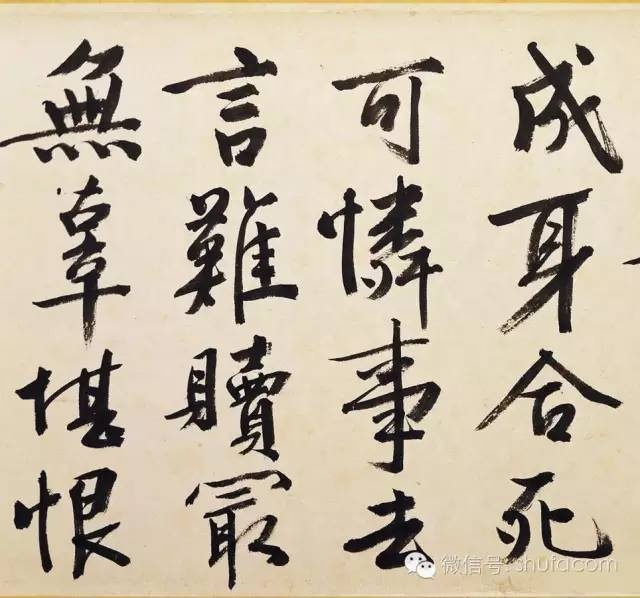 成身合死
可憐事去
言難贖最
無辜堪恨
微信号: shufacom